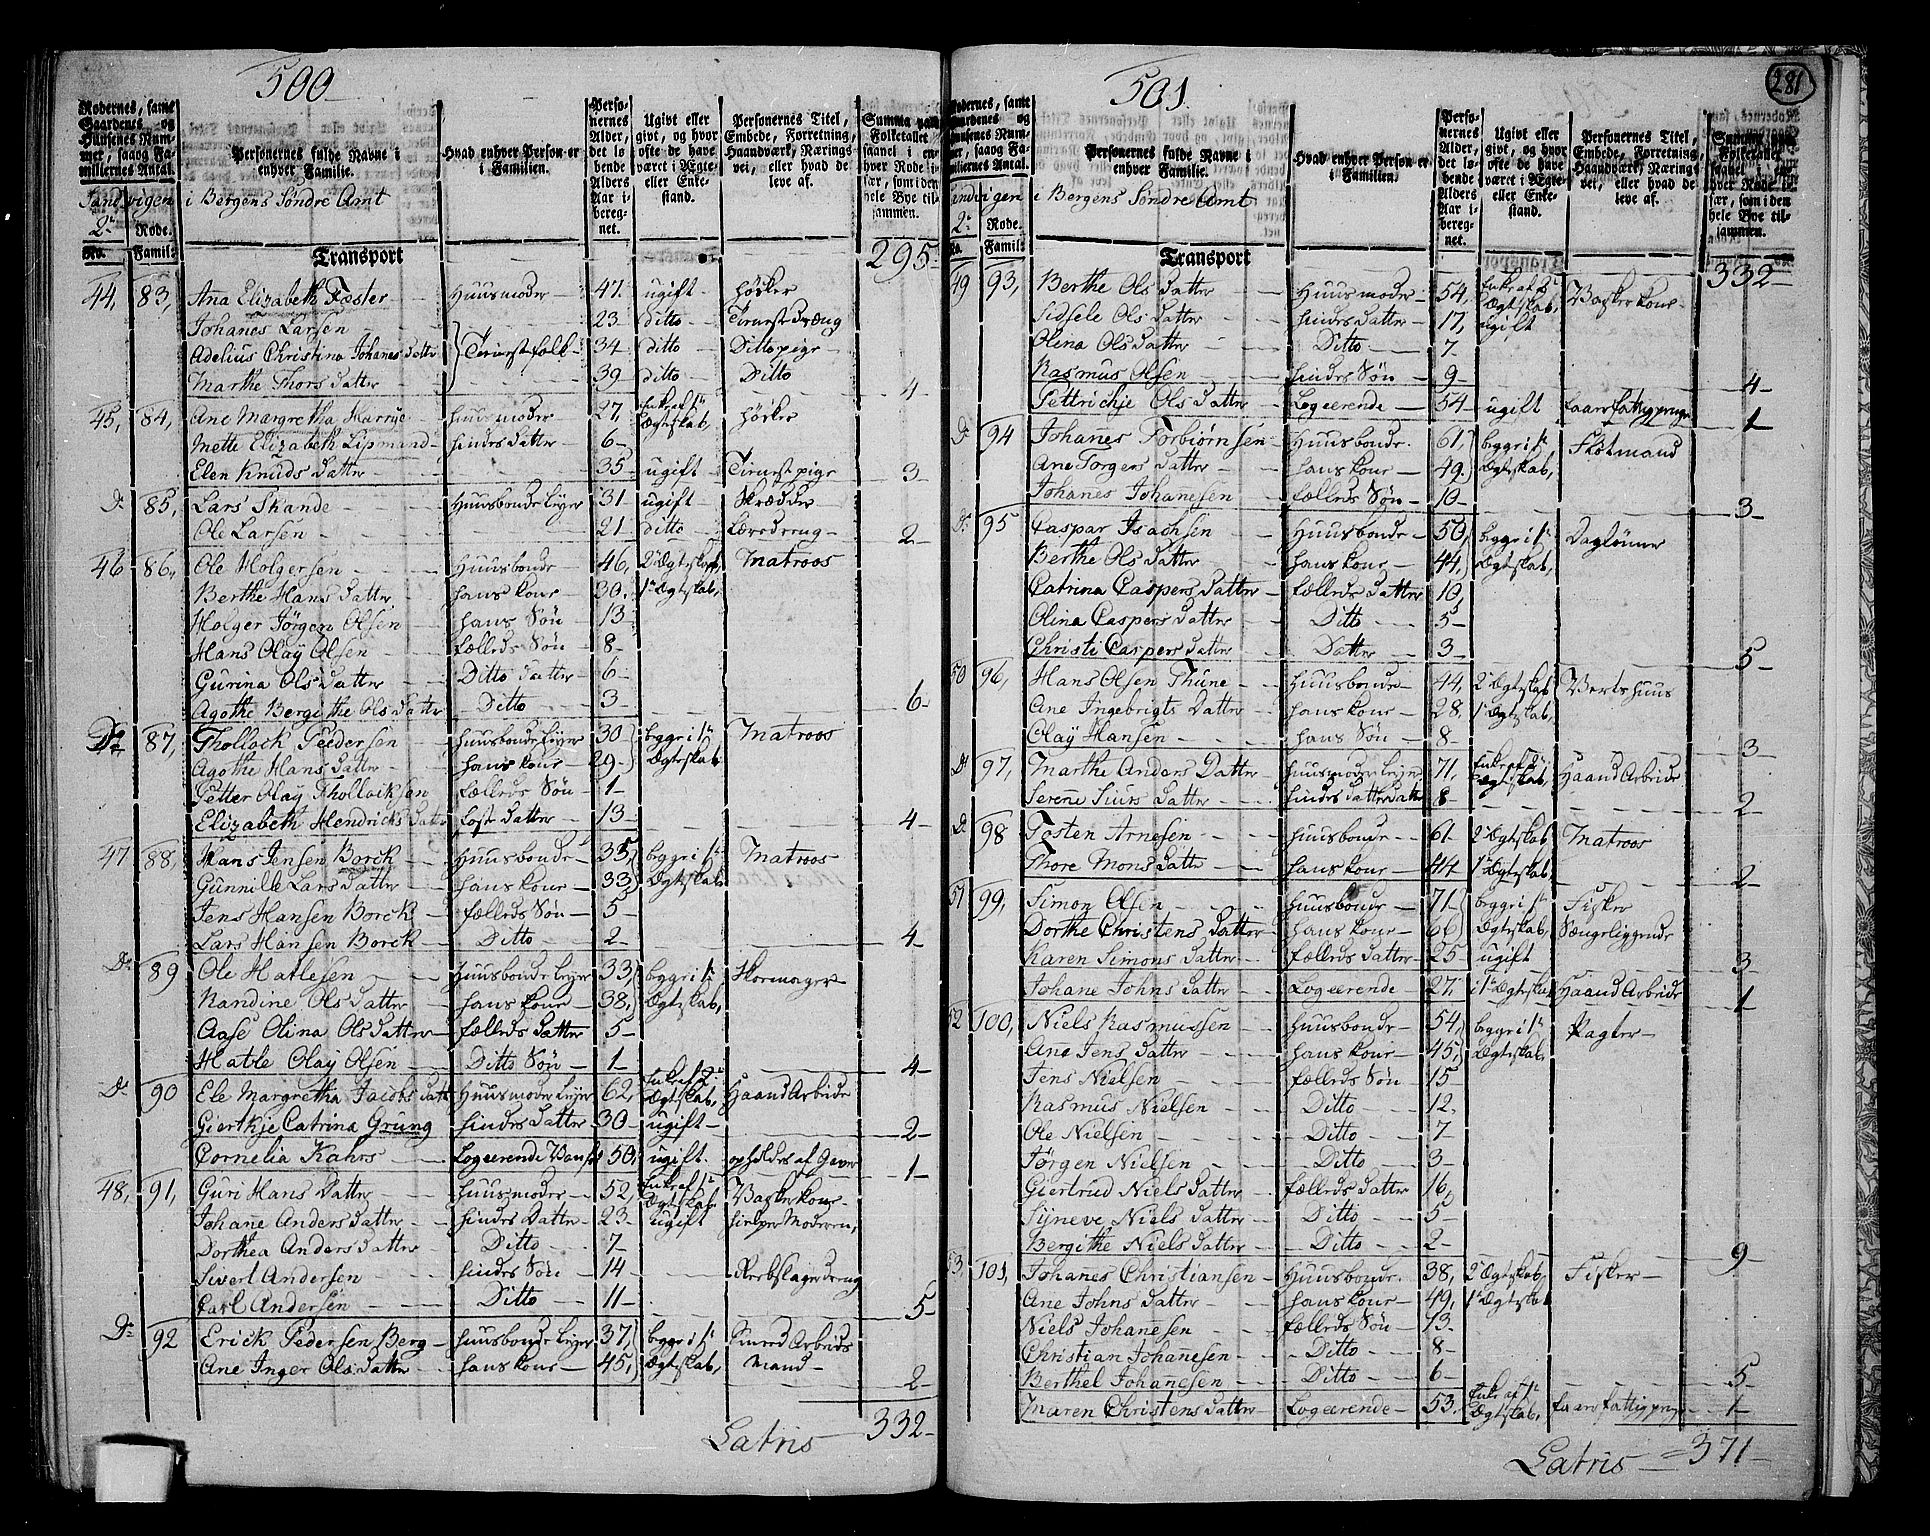 500
Rodernes, samt Gaardenes og Huusenes Nummer, saa og Familliernes Antal.
Personernes fulde Navne i enhver Familie.
Hvad enhver Person er i Familien.
Personernes Alder, det løbende Alders Aar iberegnet.
Ugivt eller givt, og hvor ofte de have været i Ægte- eller Enkestand.
Personernes Titel, Embede, Forretning, Haandværk, Næringsvei, eller hvad de leve af.
Summa paa Folketallet saavel i enhver Rode især, som i den hele Bye tilsammen.
Sandvigen i Bergens Søndre Amt
2de Rode.
No. Famil:
Transport 295
44, 83, Ana Elizabeth Fæster Huusmoder 47. ugift Høcker
Johanes Larsen 23 ditto Tienestdræng
Adelius Christina Johanes Datter Tienestfolk 34 ditto Ditto pige
Marthe Thors Datter 39 ditto Ditto 4
45, 84, Ane Margretha Harrye Huusmoder 27 Enke af 1te Ægteskab, Høcker
Mette Elizabeth Lipmand hindes Datter 6
Elen Knuds Datter 35 ugift Tienestpige 3
Do 85, Lars Skande Huusbonde Leyer 31 ugift Skrædder
Ole Larsen 21 ditto Læredreng 2
46 86, Ole Holgersen Huusbonde 46, 2det Ægteskab, Matroos
Berthe Hans Datter hans kone 30. 1te Ægteskab,
Holger Jörgen Olsen hans Søn 13
Hans Olaÿ Olsen fælleds Søn 8
Gurina Ols Datter Ditto Datter 6
Agothe Bergithe Ols Datter Ditto 3 6
Do 87, Thollack Peedersen Huusbonde Leyer 30 begge i 1te Matroos
Agothe Hans Datter hans kone 29 Ægteskab
Petter Olaÿ Thollacksen fælleds Søn 1
Elizabeth Hendrichs Datter Fost Datter 13 4
47 88, Hans Jensen Borck Huusbonde 35, begge i 1te Matroos
Gunnille Lars Datter hans kone 33 Ægteskab
Jens Hansen Borck fælleds Søn 5
Lars Hansen Borck Ditto 2 4
Do 89 Ole Hatlesen Huusbonde Leyer 33, begge i 1te Skormager
Nandine Ols Datter hans kone 38, Ægteskab,
Aase Olina Ols Datter fælleds Datter 5
Hatle Olaÿ Olsen Ditto Søn 1 4
Do 90 Ele Margretha Jacobs Datt Huusmoder Leyer 62, Enke af 2de Ægteskab, Haand Arbeide
Giertkje Catrina Grung hindes Datter 30 ugift 2
Cornelia Kahrs Logeerende 50, ugift opholdes af Gaver 1
48, 91, Guri Hans Datter Huusmoder 52, Enke af 1te Ægteskab Vaskerkone
Johane Anders Datter hindes Datter 23 ugift hielper Moderen,
Dorthea Anders Datter Ditto 7
Sivert Andersen hindes Søn 14 Rebslagerdreng
Carl Andersen Ditto 11 5
Do 92 Erick Pedersen Berg Huusbonde Leyer 37, begge i 1te Arbeids
Ane Inger Ols Datter hans kone 45, Ægteskab, Mand 2
Latris 332
501
281
Rodernes, samt Gaardenes og Huusenes Nummer, saa og Familliernes Antal.
Personernes fulde Navne i enhver Familie.
Hvad enhver Person er i Familien.
Personernes Alder, det løbende Alders Aar iberegnet.
Ugivt eller givt, og hvor ofte de have været i Ægte- eller Enkestand.
Personernes Titel, Embede, Forretning, Haandværk, Næringsvei, eller hvad de leve af.
Summa paa Folketallet saavel i enhver Rode især, som i den hele Bye tilsammen.
Sandvigen i Bergens Söndre Amt
2de Rode.
No. Famil:
Transport 332
49 93, Berthe Ols Datter Huusmoder 54, Enke af 2de Ægteskab, Vaskerkone
Sidsele Ols Datter hindes Datter 17, ugift
Olina Ols Datter Ditto 7
Rasmus Olsen hindes Søn 9 4
Pettrichje Ols Datter Logeerende 54 ugift faaer fattigpenge 1
Do 94 Johanes Torbiörnsen Huusbonde 61, begge i 1te Flötmand
Ane Torgers Datter hans kone 49. Ægteskab,
Johanes Johanesen fælleds Søn 10 3
Do 95 Caspar Isachsen Huusbonde 50, begge i 1te Daglönner
Berthe Ols Datter hans kone 44, Ægteskab,
Catrina Caspers Datter fælleds Datter 10,
Olina Caspers Datter Ditto 5
Christi Caspers Datter Datter 3 5
50 96, Hans Olsen Thune Huusbonde 44, 2det Ægteskab Vertshuus
Ane Ingebrigts Datter hans kone 28, 1te Ægteskab,
Olaÿ Hansen hans Søn 8 3
Do 97, Marthe Anders Datter Huusmoder Leyer 71, Enke af 2de Ægteskab, Haand Arbeide
Serene Siurs Datter hindes Datterdatter 8 2
Do 98 Tosten Arnesen Huusbonde 61 2det Ægteskab, Matroos
Thore Mons Datter hans kone 44 1te Ægteskab, 2
51 99, Simon Olsen Huusbonde 71 begge i 1te Fisker
Dorthe Christens Datter hans kone 66 Ægteskab, Sængeliggende
Karen Simons Datter fælleds Datter 25 ugift 3
Johane Johns Datter Logeerende 27, i 1te Ægteskab Haand Arbeide 1
52 100, Niels Rasmussen Huusbonde 54, begge i 1te Vagter
Ane Jens Datter hans kone 45, Ægteskab,
Jens Nielsen fælleds Søn 15
Rasmus Nielsen Ditto 12.
Ole Nielsen Ditto 7
Jörgen Nielsen Ditto 3
Giertrud Niels Datter fælleds Datter 16,
Sÿneve Niels Datter Ditto 5
Bergithe Niels Datter Ditto 2 9
53, 101, Johanes Christiansen Huusbonde. 38, 2det Ægteskab, Fisker
Ane Johns Datter hans kone 49, 1te Ægteskab
Niels Johanesen fælleds Søn 13
Christian Johanesen Ditto 8
Berthel Johanesen Ditto 6 5
Maren Christens Datter Logeerende 53. Enke af 1te Ægteskab, faaer fattigpenge 1
Latris 371